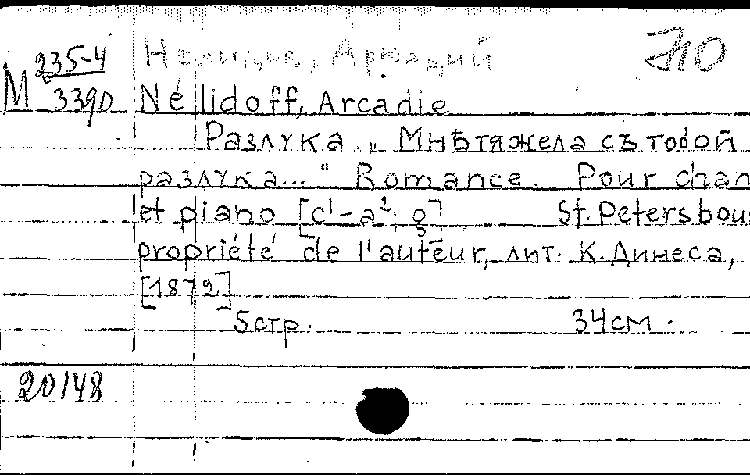 235-4 Нелидов, Аркадий 710
M 3390 Nélidoff, Arcadie
Разлука. „Мнѣ тяжела съ тобой
разлука..." Romance. Pour chan
et piano [c¹-a²; g] St. Petersbou
propriété de l'auteur, лит. К. Динеса,
[1872]
5 стр. 34 см.
20/48